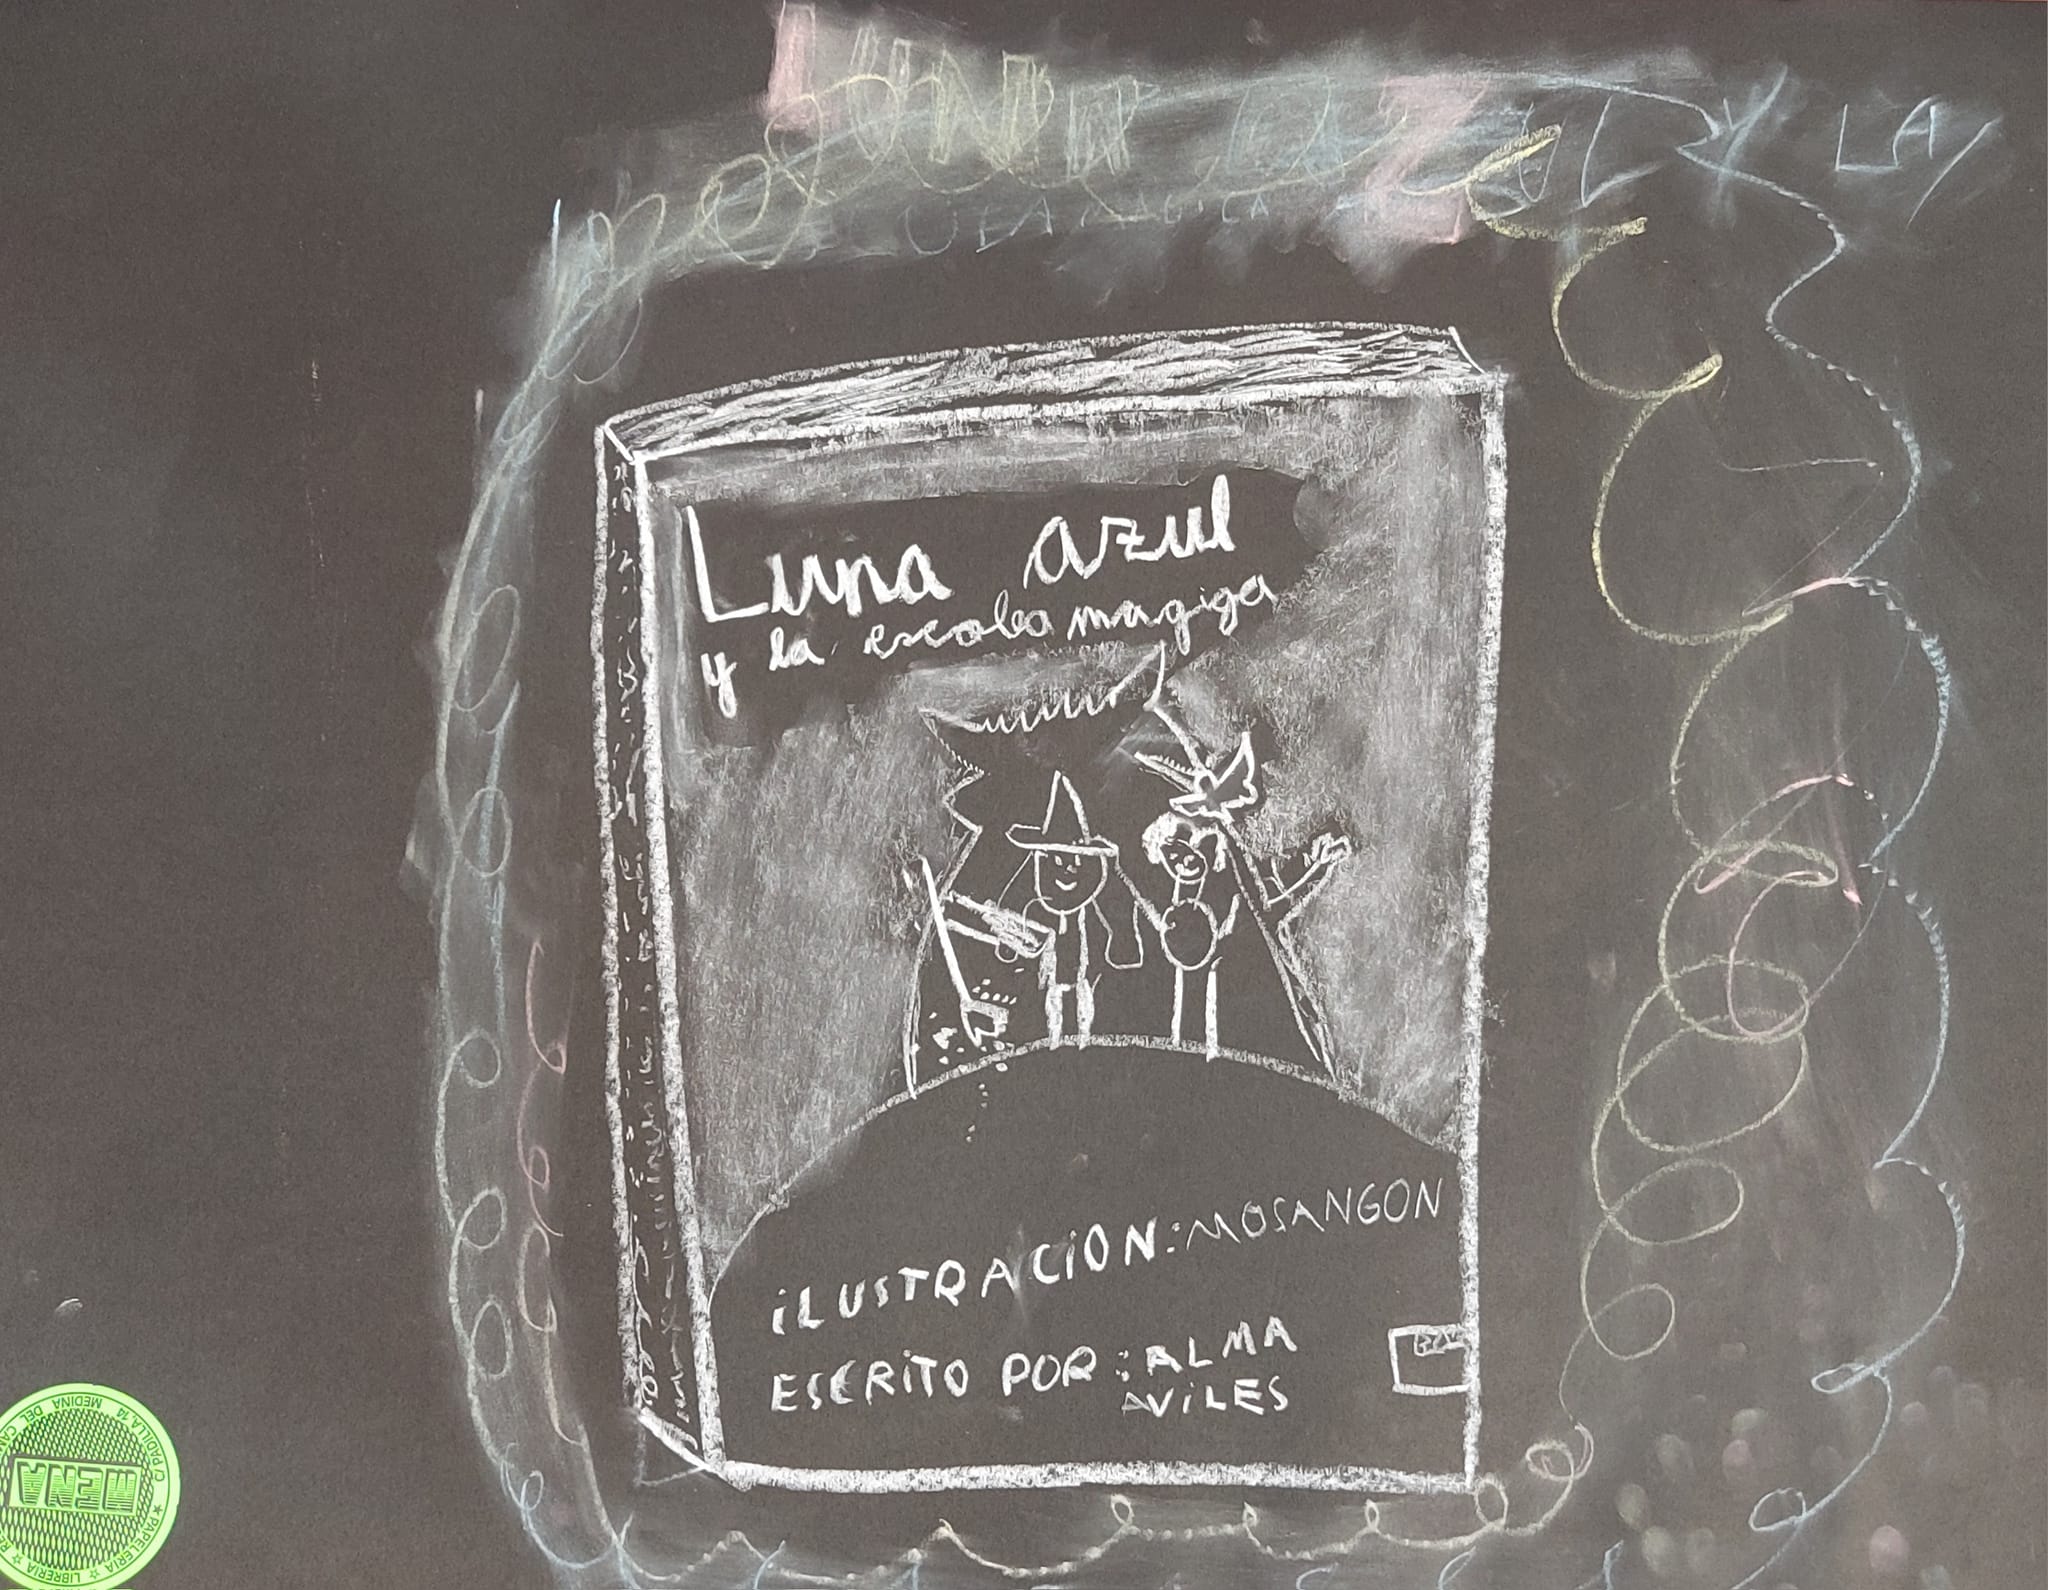 LUNA AZUL Y LA
MAGICA
Luna azul
y la escoba magiga
iLUSTRACiON: MOSANGON
ESCRiTO POR: ALMA
AViLES
MENA
C/ PADILLA, 14 MEDINA DEL
★ PAPELERIA ★ LIBRERIA ★